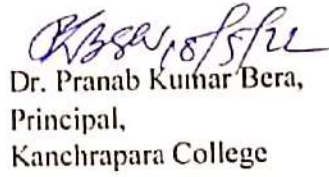 18/5/22
Dr. Pranab Kumar Bera,
Principal,
Kanchrapara College